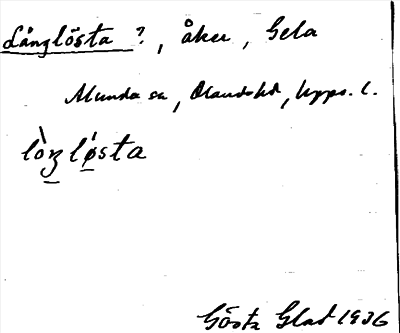 Långlösta ?, åker, Gela
Almunda sn, Olands hd, Upps. l.
lòŋløsta
Gösta Glad 1936